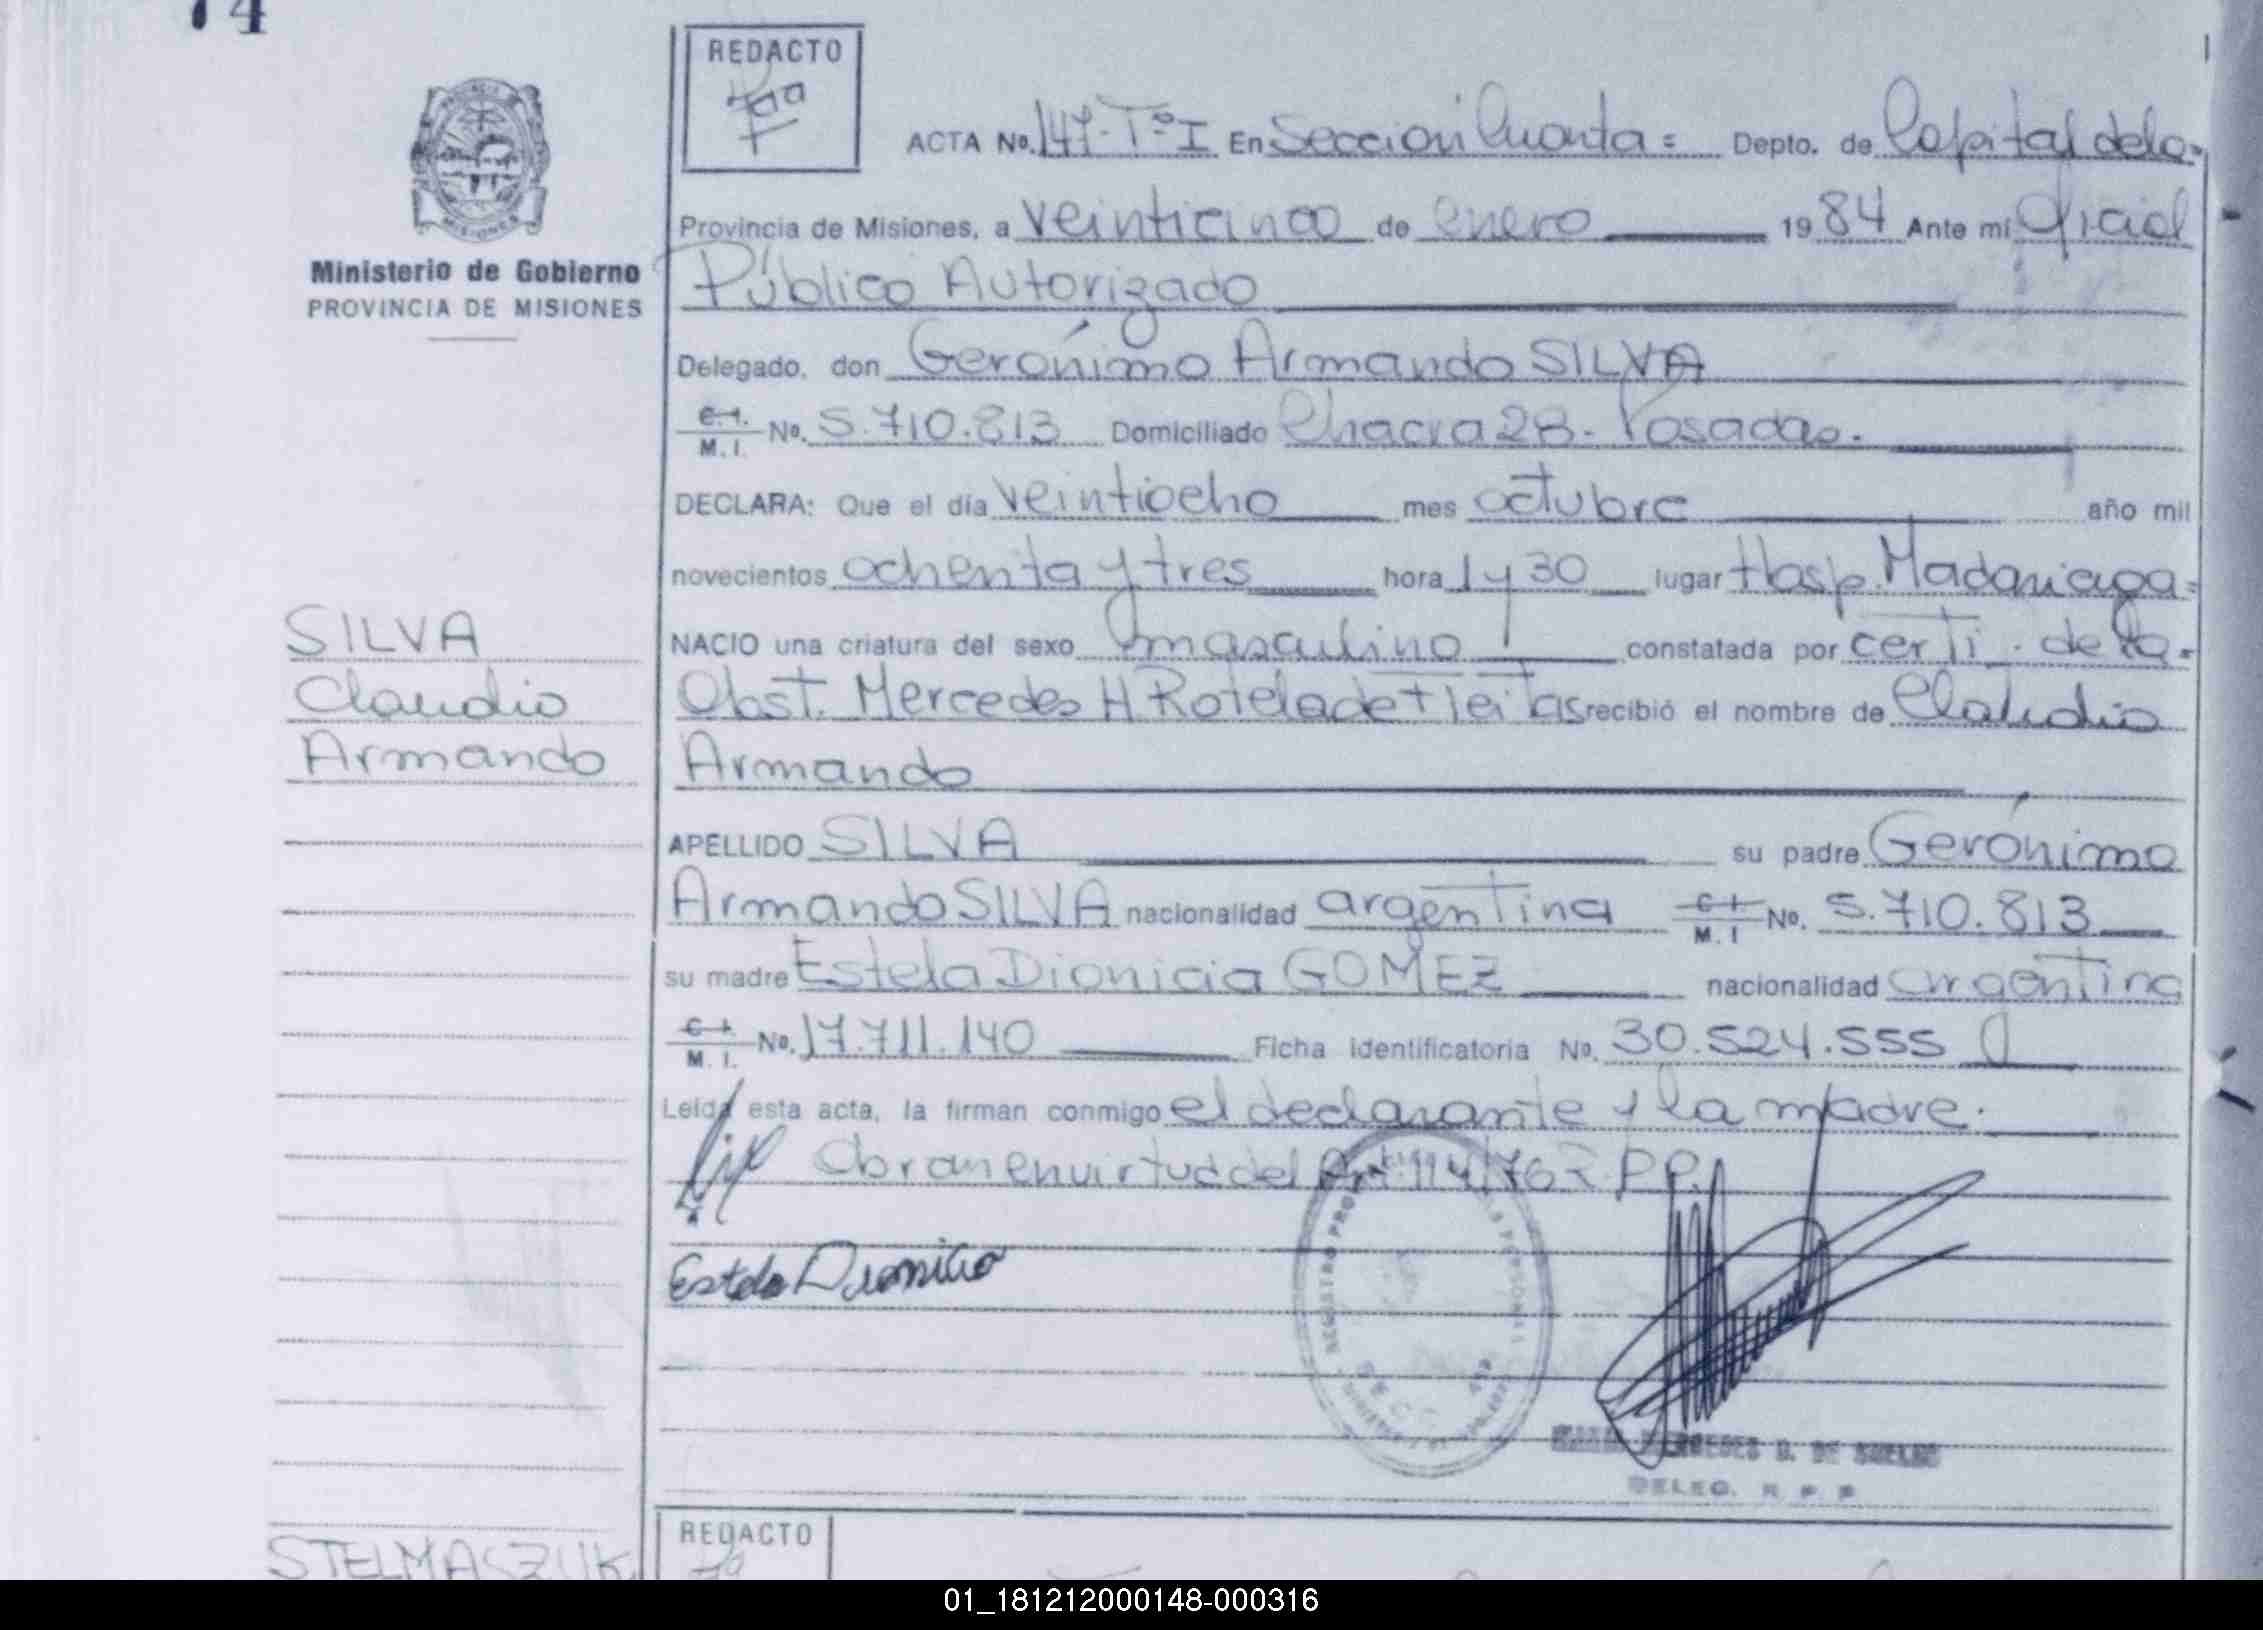 74
REDACTO
ACTA Nº. 147-Tº I En Sección Cuarta = Depto. de Capital de la
Provincia de Misiones, a veinticinco de enero 1984 Ante mí Oficial
Público Autorizado
Delegado, don Gerónimo Armando SILVA
C.I. M.I. Nº. 5.710.813 Domiciliado Chacra 28. Posadas.
DECLARA: Que el día veintiocho mes octubre año mil
novecientos ochenta y tres hora 1 y 30 lugar Hosp. Madariaga=
NACIO una criatura del sexo masculino constatada por certi. de la
Obst. Mercedes H Rotela de Fleitas recibió el nombre de Claudio
Armando
APELLIDO SILVA su padre Gerónimo
Armando SILVA nacionalidad argentina C.I. M.I Nº. 5.710.813
su madre Estela Dionicia GOMEZ nacionalidad argentina
C.I. M.I. Nº. 17.711.140 Ficha Identificatoria Nº. 30.524.555
Leída esta acta, la firman conmigo el declarante y la madre.
Obran en virtud del Art. 114/76 R.P.P.
Estela Dionicia
REGISTRO PRO
SECC
MERCEDES D. DE
DELEG. R P P
REDACTO
Ministerio de Gobierno
PROVINCIA DE MISIONES
SILVA
Claudio
Armando
STELMASZUK
01_181212000148-000316